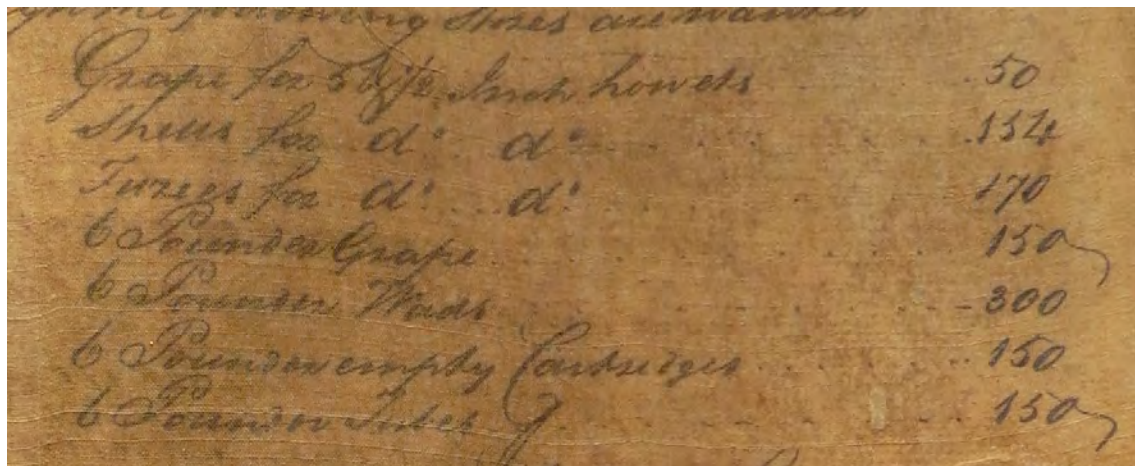 the following Stores are wanted
Grape for 5 1/2 Inch howets 50
Shells for do do 154
Fuzees for do do 170
6 Pounder Grape 150
6 Pounder Wads 300
6 Pounder empty Cartridges 150
6 Pounder Tubes 150